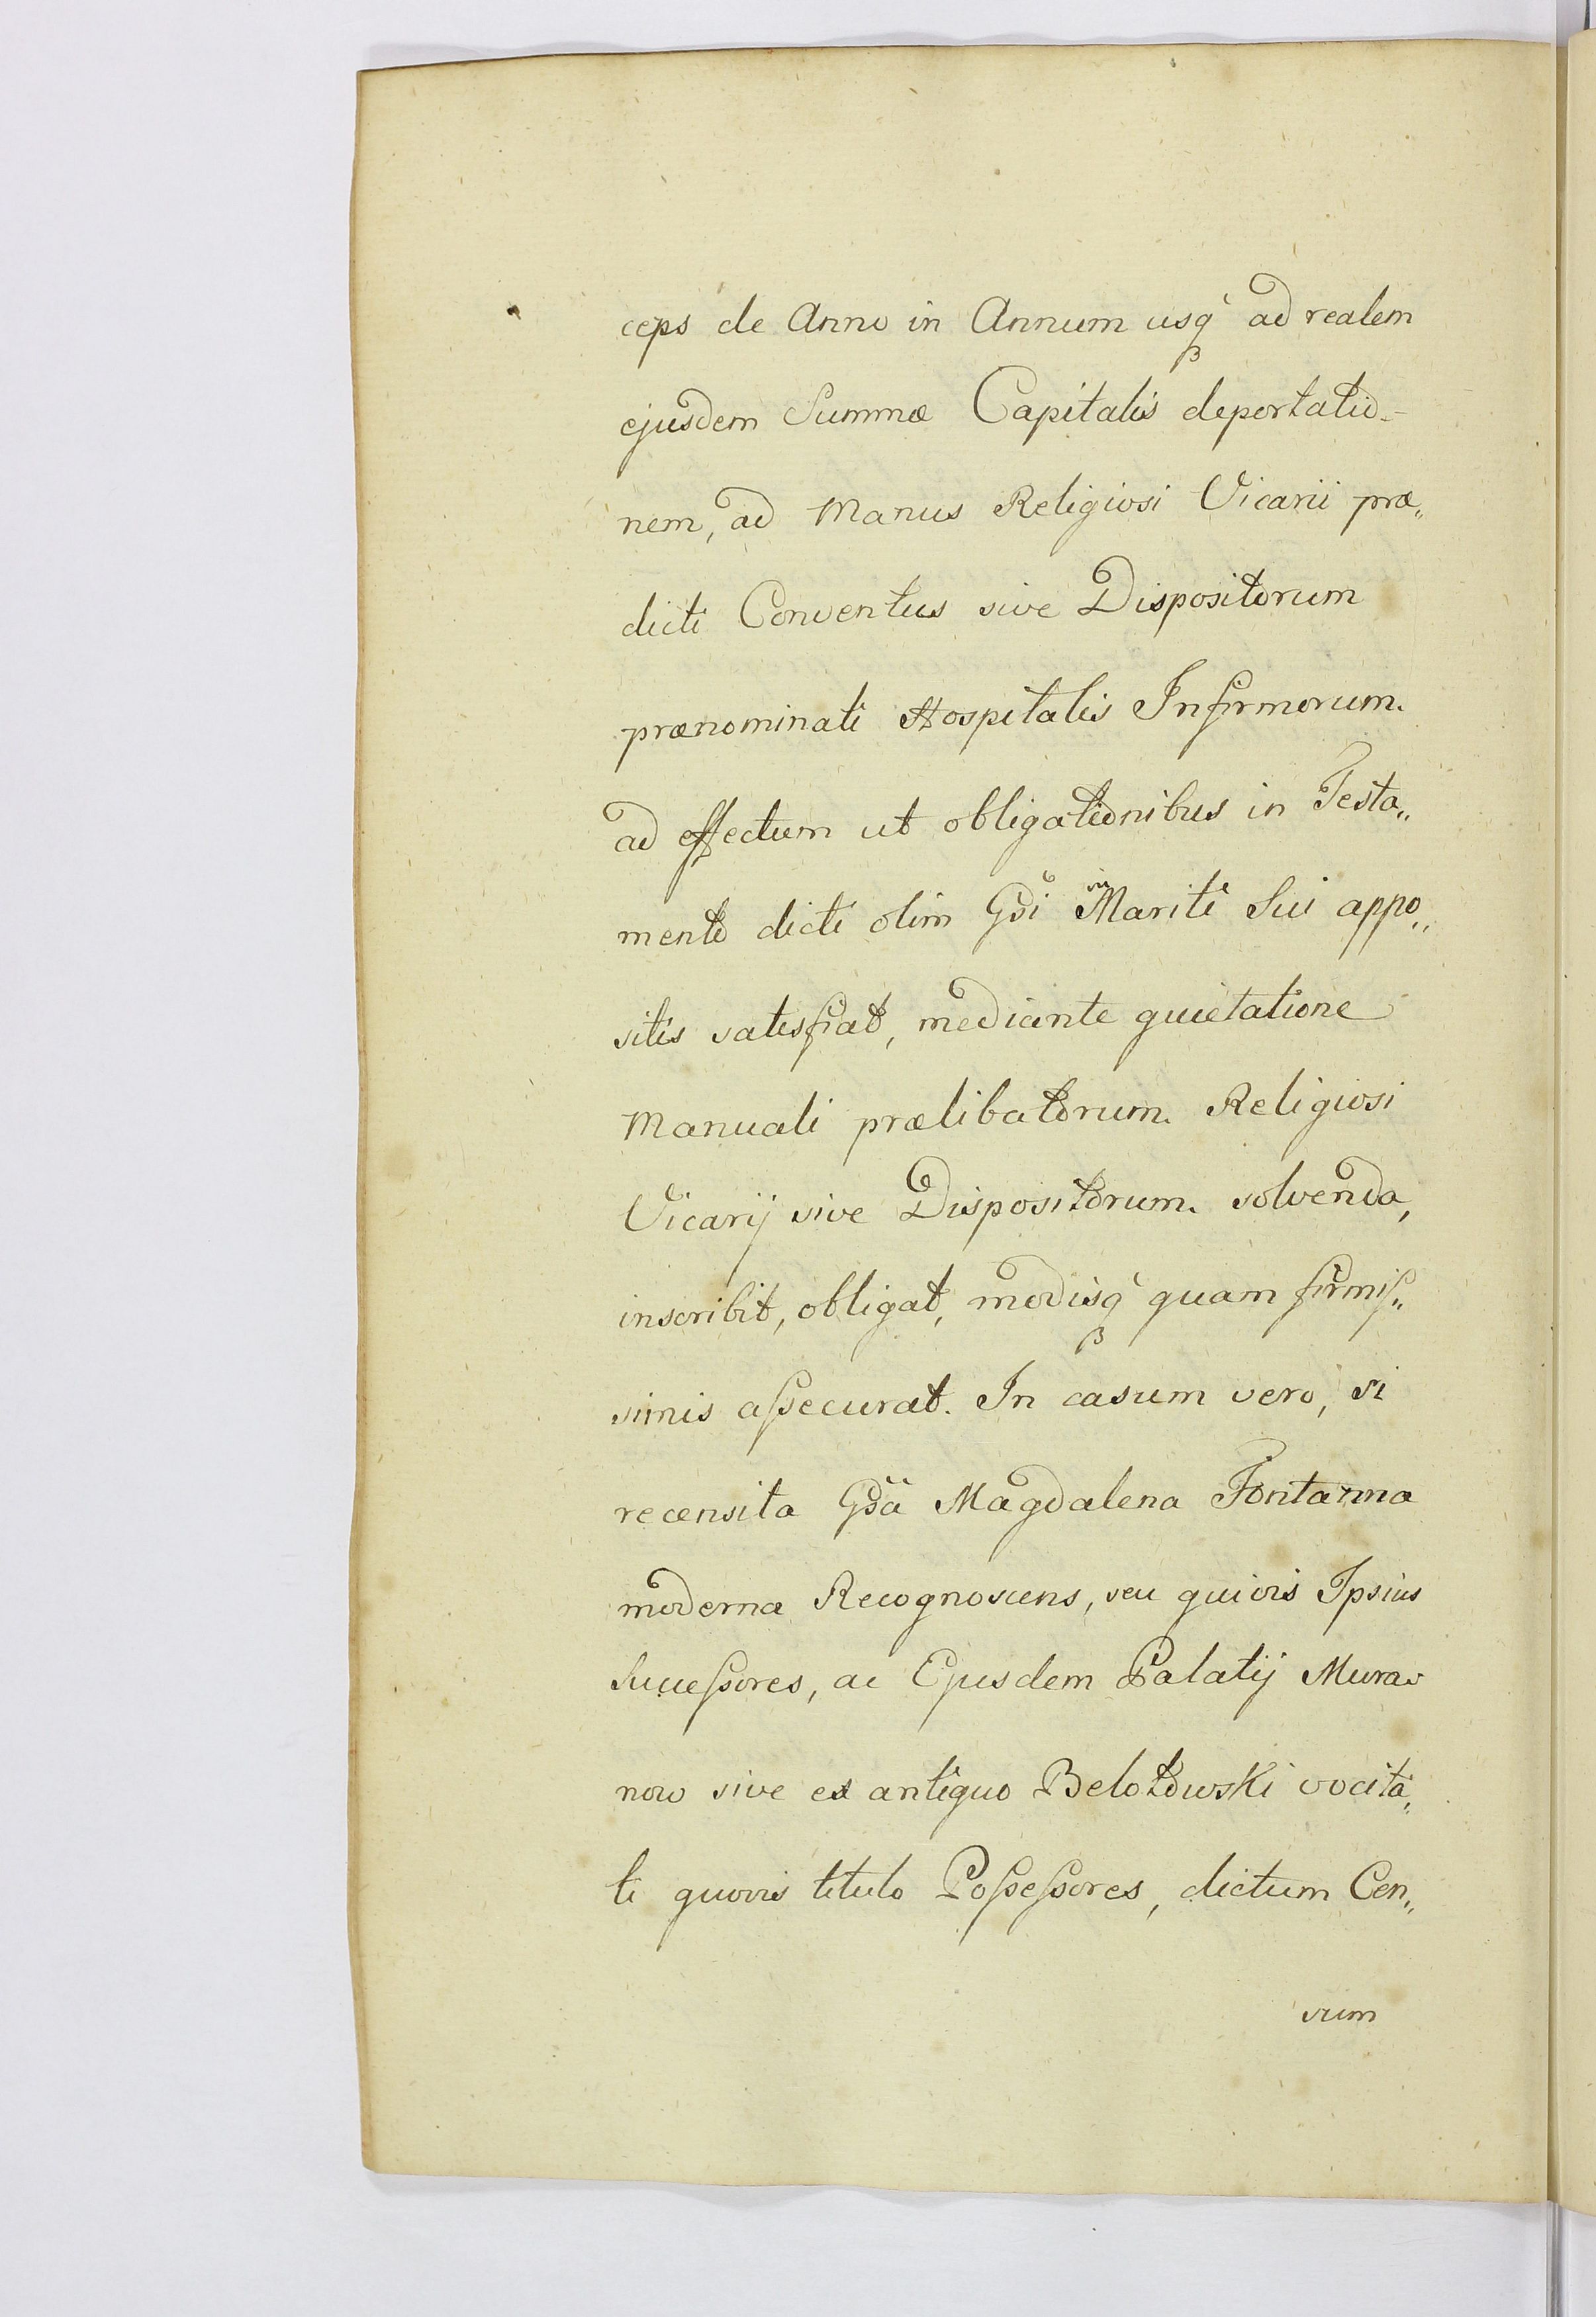 ceps de Anno in Annum usq̀ ad realem
ejusdem Summæ Capitalis deportatio-
nem, ad Manus Religiosi Vicarii præ„
dicti Conventus sive Dispositorum
prænominati Hospitalis Infirmorum.
ad effectum ut obligationibus in Testa„
mento dicti olim Gdi Mariti Sui appo„
sitis satisfiat, mediante quietatione
Manuali prælibatorum. Religiosi
Vicarij sive Dispositorum. solvenda,
inscribit, obligat, modisq̀ quam firmiſ„
simis aſsecurat. In casum vero, si
recensita Gda Magdalena Fontanna
moderna Recognoscens, seu quivis Ipsius
Succeſsores, ac Ejusdem Palatij Mura„
now sive ex antiquo Belotowski vocita„
ti quovis titulo Poſseſsores, dictum Cen„
sum